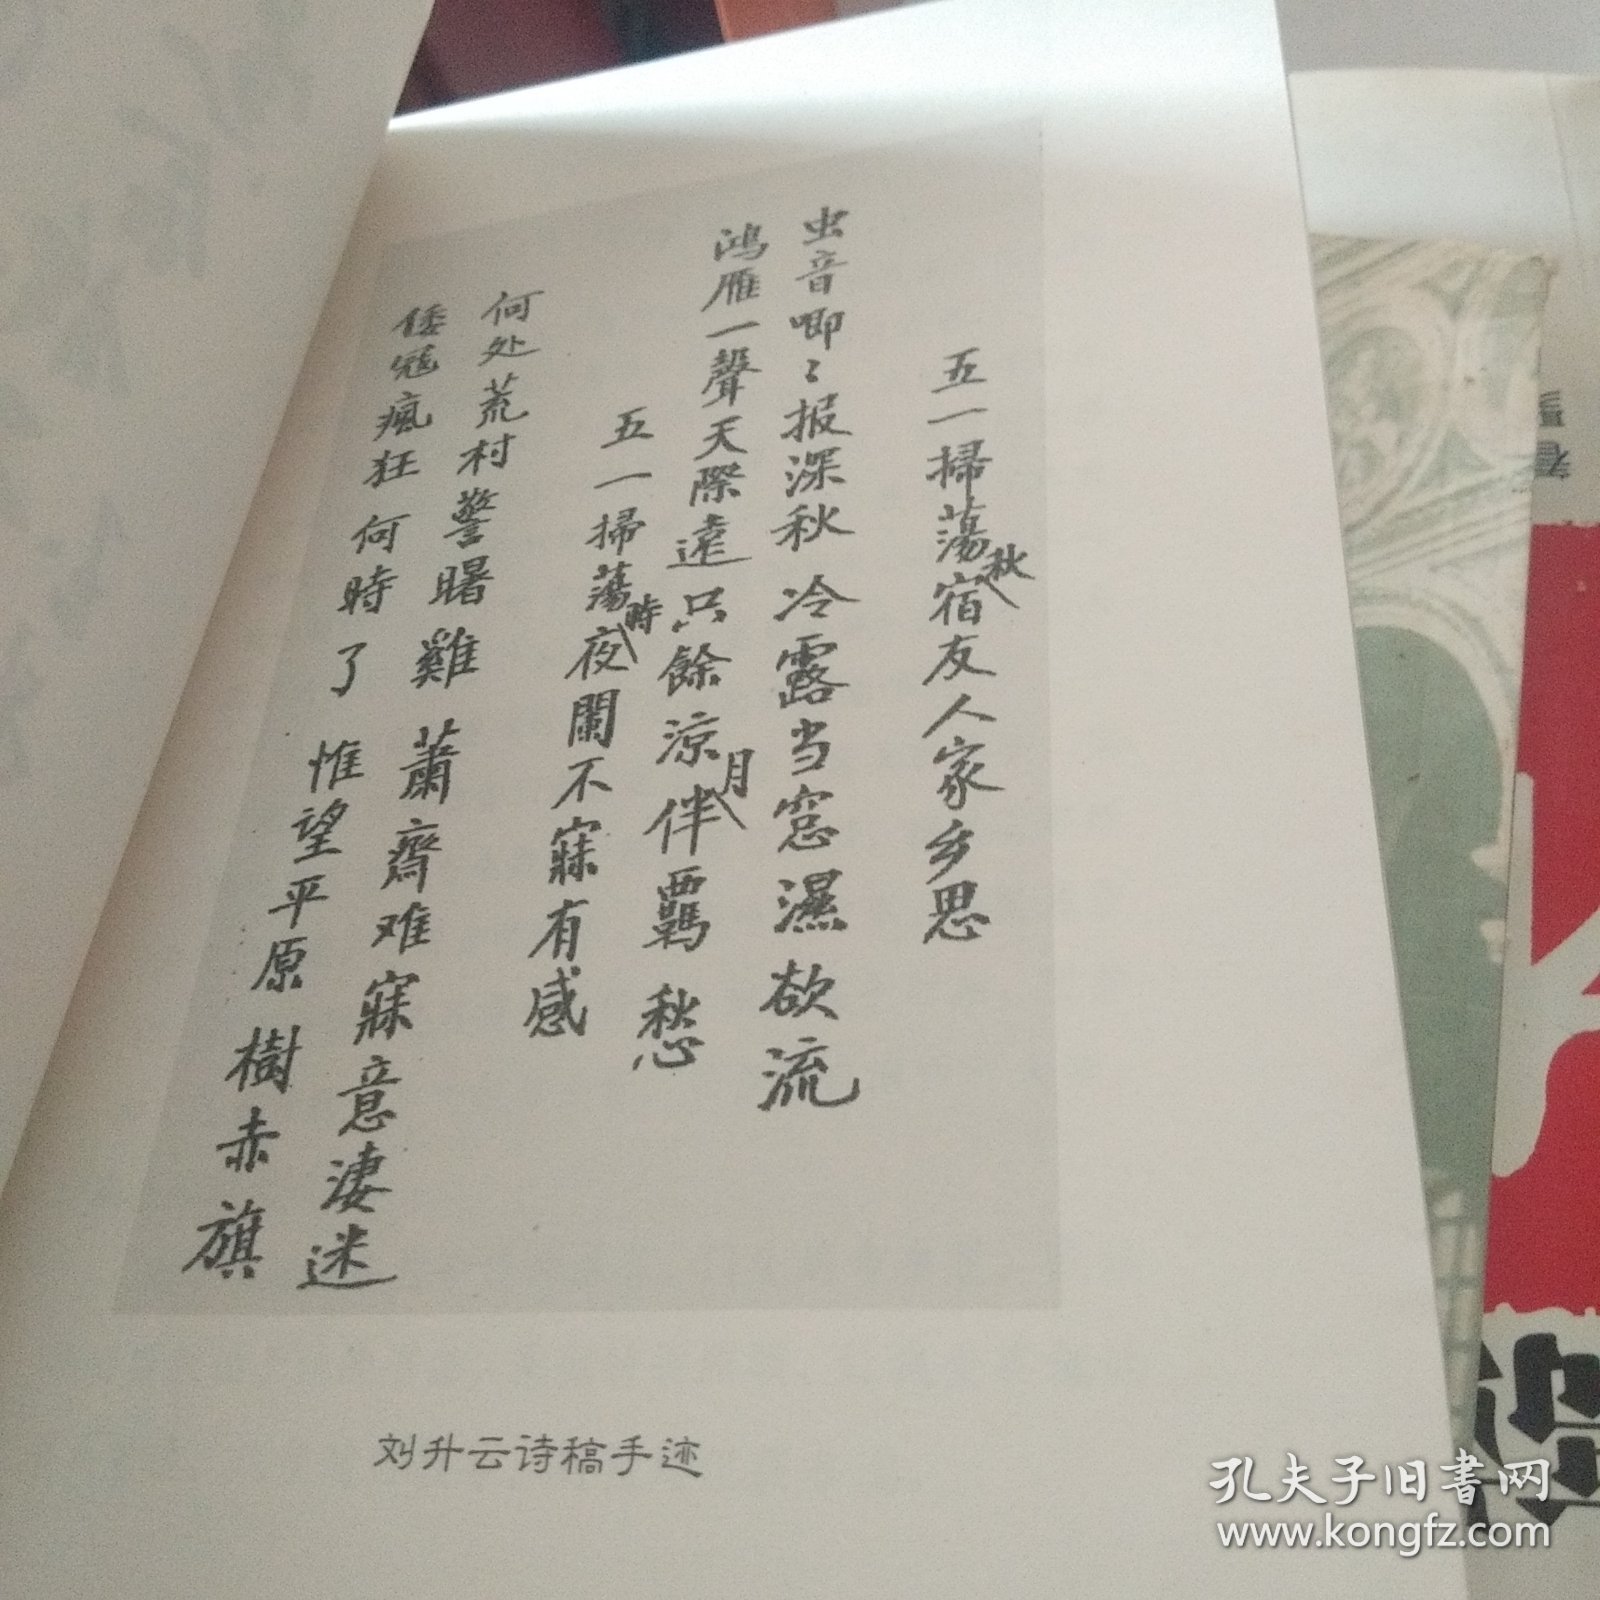 五一掃蕩秋宿友人家乡思
虫音唧〻报深秋 冷露当窓濕欲流
鴻雁一聲天際遠 只餘涼月伴羁愁
五一掃蕩時夜闌不寐有感
何处荒村警曙雞 蕭齋难寐意淒迷
倭寇瘋狂何時了 惟望平原樹赤旗
刘升云诗稿手迹
孔夫子旧書网
www.kongfz.com